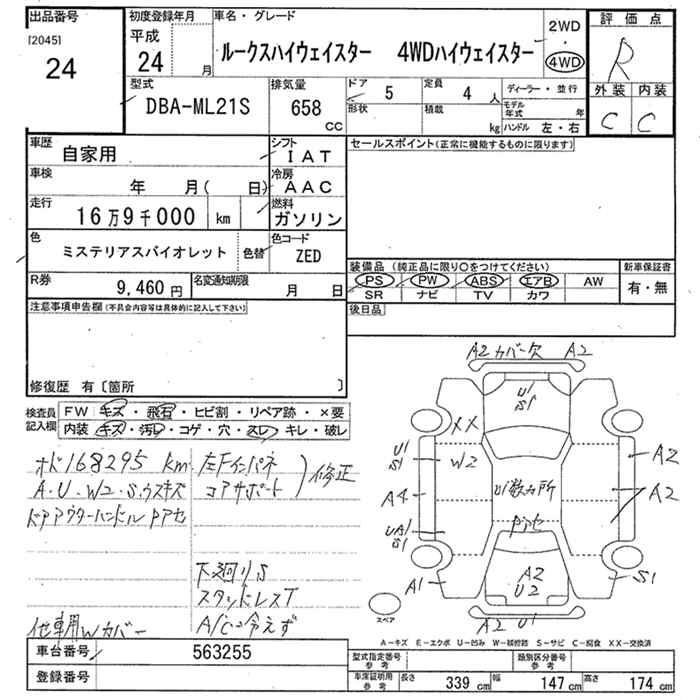 出品番号
[2045]
24
初度登録年月
平成
24 月
車名・グレード
ルークスハイウェイスター 4WDハイウェイスター
2WD
・
4WD
評価点
R
外装 内装
C C
型式
DBA-ML21S
排気量
658
CC
ドア
5
定員
4 人
形状
積載
kg
ディーラー・並行
モデル年式 年
ハンドル 左・右
車歴
自家用
シフト
IAT
セールスポイント(正常に機能するものに限ります)
車検
年 月( 日)
冷房
AAC
走行
16万9千000 km
燃料
ガソリン
色
ミステリアスバイオレット
色替
色コード
ZED
R券
9,460 円
名変通知期限
月 日
装備品 (純正品に限り○をつけてください)
PS PW ABS エアB AW
SR ナビ TV カワ
新車保証書
有・無
後日品
注意事項申告欄(不具合内容等は具体的に記入して下さい)
修復歴 有〔箇所 〕
検査員記入欄
FW キズ・飛石・ヒビ割・リペア跡・×要
内装 キズ・汚レ・コゲ・穴・スレ・キレ・破レ
オド168295 km
A・U・W2・S、ウスキズ
ドアアウターハンドルPアセ
左Fインパネ
コアサポート
修正
下廻りS
スタッドレスT
A/C冷えず
他車用Wカバー
A2 カバー欠 A2
U1
S1
XX
W2
U1
S1
A4
UA1
S1
A1
U1数カ所
Pアセ
A2
U2
A2
A2
S1
A2 U1
スペア
A-キズ E-エクボ U-凹み W-補修跡 S-サビ C-腐食 XX-交換済
車台番号
563255
登録番号
型式指定番号
参考
類別区分番号
参考
車庫証明用
参考
長さ 339 cm
幅 147 cm
高さ 174 cm